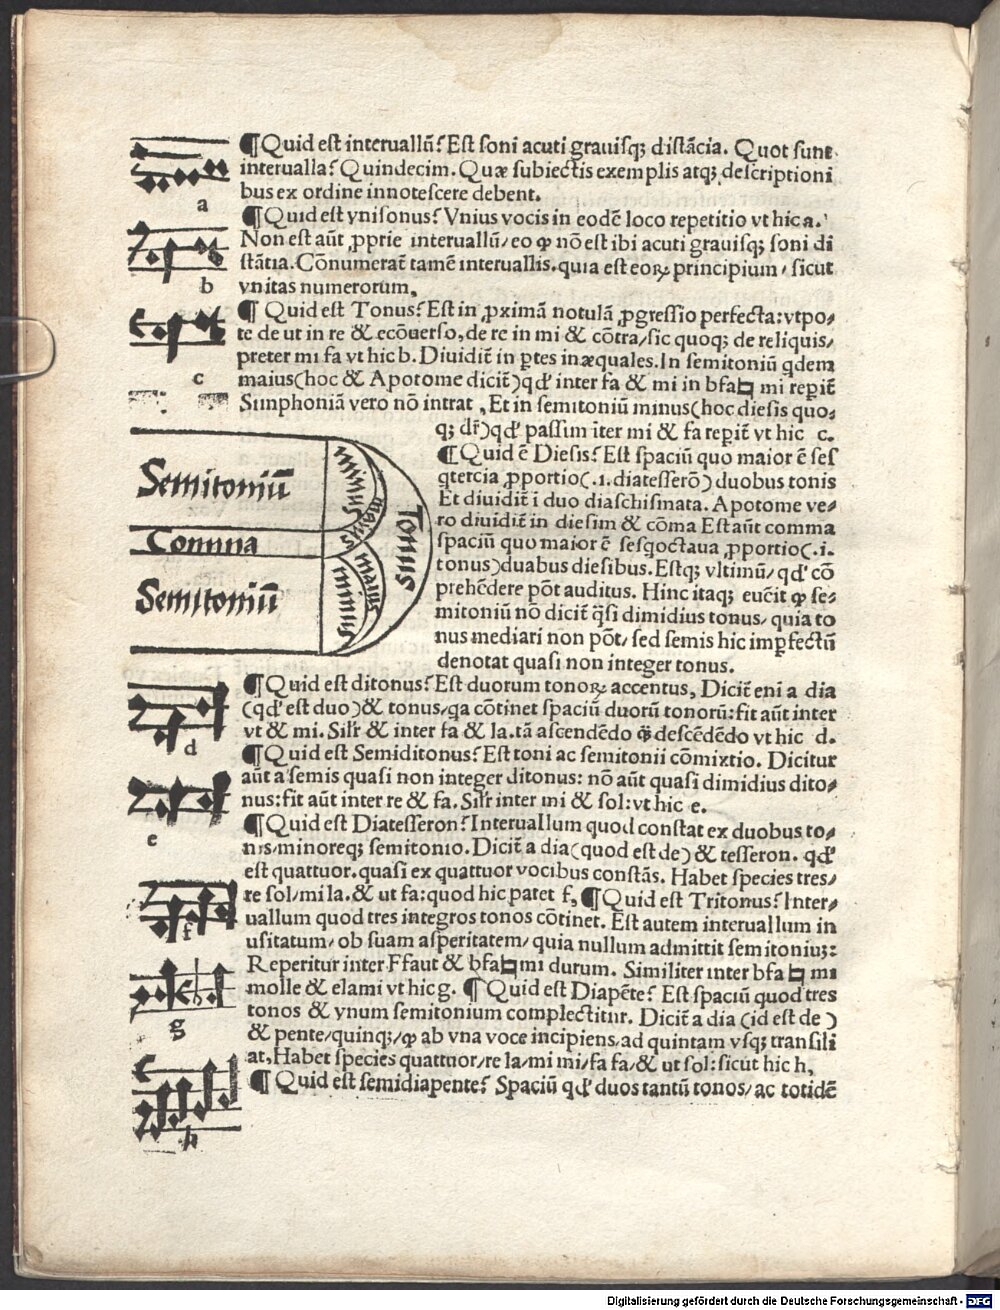 ¶Quid est interuallũ? Est soni acuti grauisq; distãcia. Quot sunt
interualla? Quindecim. Quæ subiectis exemplis atq; descriptioni
bus ex ordine innotescere debent.
a
¶Quid est vnisonus? Vnius vocis in eodẽ loco repetitio vt hic a.
Non est aũt ꝓprie interuallũ/ eo ꝙ nõ est ibi acuti grauisq; soni di
stãtia. Cõnumerat̃ tamẽ interuallis. quia est eoꝝ principium/ sicut
vnitas numerorum.
b
¶ Quid est Tonus? Est in ꝓximã notulã ꝓgressio perfecta: vtpo⸗
te de ut in re & ecõuerso, de re in mi & cõtra/ sic quoq; de reliquis/
preter mi fa vt hic b. Diuidit̃ in ꝑtes inæquales. In semitoniũ qdem
maius (hoc & Apotome dicit̃) qd' inter fa & mi in bfa♮ mi reꝑit̃
c
Simphoniã vero nõ intrat, Et in semitoniũ minus (hoc diesis quo⸗
q; dr̃) qd' passim iter mi & fa reꝑit̃ vt hic c.
¶Quid ẽ Diesis? Est spaciũ quo maior ẽ ses
qtercia ꝓportio (.i. diatesserõ) duobus tonis
Et diuidit̃ i duo diaschismata. Apotome ve⸗
ro diuidit̃ in diesim & cõma Est aũt comma
spaciũ quo maior ẽ sesqoctaua ꝓportio (.i.
tonus) duabus diesibus. Estq; vltimũ/ qd' cõ
prehẽdere põt auditus. Hinc itaq; euẽit ꝙ se⸗
mitoniũ nõ dicit̃ q̃si dimidius tonus/ quia to
nus mediari non põt/ sed semis hic imꝑfectũ
denotat quasi non integer tonus.
Semitoniũ
Comma
Semitoniũ
minus
maius
maius
minus
Tonus
¶Quid est ditonus? Est duorum tonoꝝ accentus, Dicit̃ eni a dia
(qd' est duo) & tonus/ qa cõtinet spaciũ duorũ tonorũ: fit aũt inter
vt & mi. Sil'r & inter fa & la. tã ascendẽdo q̃ descẽdẽdo vt hic d.
d
¶Quid est Semiditonus? Est toni ac semitonii cõmixtio. Dicitur
aũt a semis quasi non integer ditonus: nõ aũt quasi dimidius dito⸗
nus: fit aũt inter re & fa. Sil'r inter mi & sol: vt hic e.
e
¶Quid est Diatesseron? Interuallum quod constat ex duobus to⸗
nis/ minoreq; semitonio. Dicit̃ a dia (quod est de) & tesseron. qd'
est quattuor. quasi ex quattuor vocibus constãs. Habet species tres/
re sol/ mi la. & ut fa: quod hic patet f, ¶Quid est Tritonus? Inter⸗
uallum quod tres integros tonos cõtinet. Est autem interuallum in
usitatum/ ob suam asperitatem/ quia nullum admittit semitoniu;:
f
Reperitur inter Ffaut & bfa♮mi durum. Similiter inter bfa♮ mi
molle & elami vt hic g. ¶Quid est Diapẽte? Est spaciũ quod tres
tonos & vnum semitonium complectitur. Dicit̃ a dia (id est de)
g
& pente/ quinq;/ ꝙ ab vna voce incipiens/ ad quintam vsq; transili
at, Habet species quattuor/ re la/ mi mi/ fa fa/ & ut sol: sicut hic h,
¶ Quid est semidiapente? Spaciũ qd' duos tantũ tonos/ ac totidẽ
h
Digitalisierung gefördert durch die Deutsche Forschungsgemeinschaft - DFG